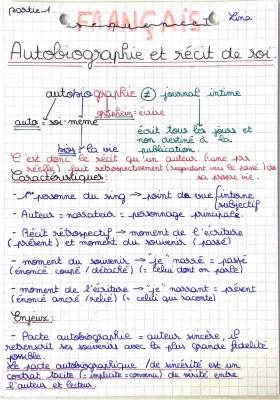 partie 1.
FRANÇAIS
séquence 1
Lina
Autobiographie et récit de soi.
autobiographie (≠) journal intime
graphein = écrire
auto = soi-même
écrit tous les jours et
non destiné à la
bios = la vie publication.
C'est donc le récit qu'un auteur (une prs
réelle) fait rétrospectivement (regardant vers le passé) de
sa propre vie.
Caractéristiques :
- 1ère personne du sing → point de vue interne
subjectif
- Auteur = narrateur = personnage principale.
- Récit rétrospectif → moment de l'écriture
(présent) et moment du souvenir (passé)
- moment du souvenir → "je" narré = passé
(énoncé coupé / détaché) (= celui dont on parle)
- moment de l'écriture → "je" narrant = présent
(énoncé ancré / relié) (= celui qui raconte)
Enjeux :
- Pacte autobiographie = auteur sincère, il
retranscrit ses souvenirs avec la plus grande fidélité
possible.
Le pacte autobiographique / de sincérité est un
contrat tacite (= implicite = convenu) de vérité entre
l'auteur et lecteur.